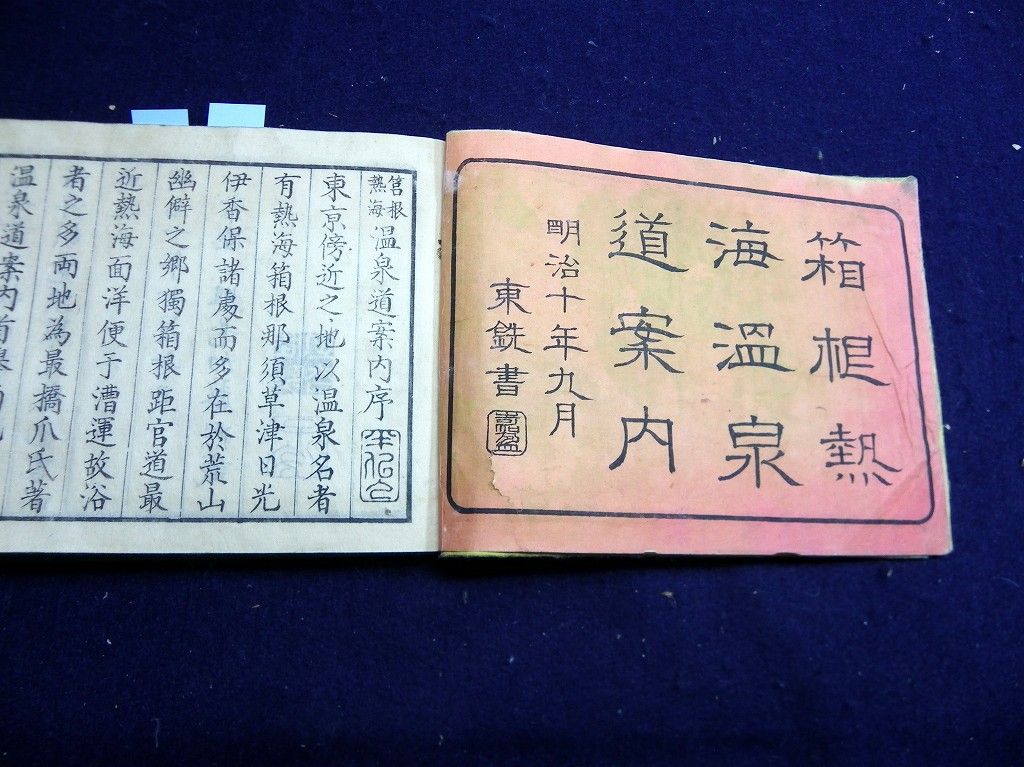 箱根熱
海温泉
道案内
明治十年九月
東銑書
箱根熱海温泉道案内序
東京傍近之地以温泉名者
有熱海箱根那須草津日光
伊香保諸處而多在於荒山
幽僻之郷獨箱根距官道最
近熱海面洋便于漕運故浴
者之多両地為最橋爪氏著
温泉道案内首